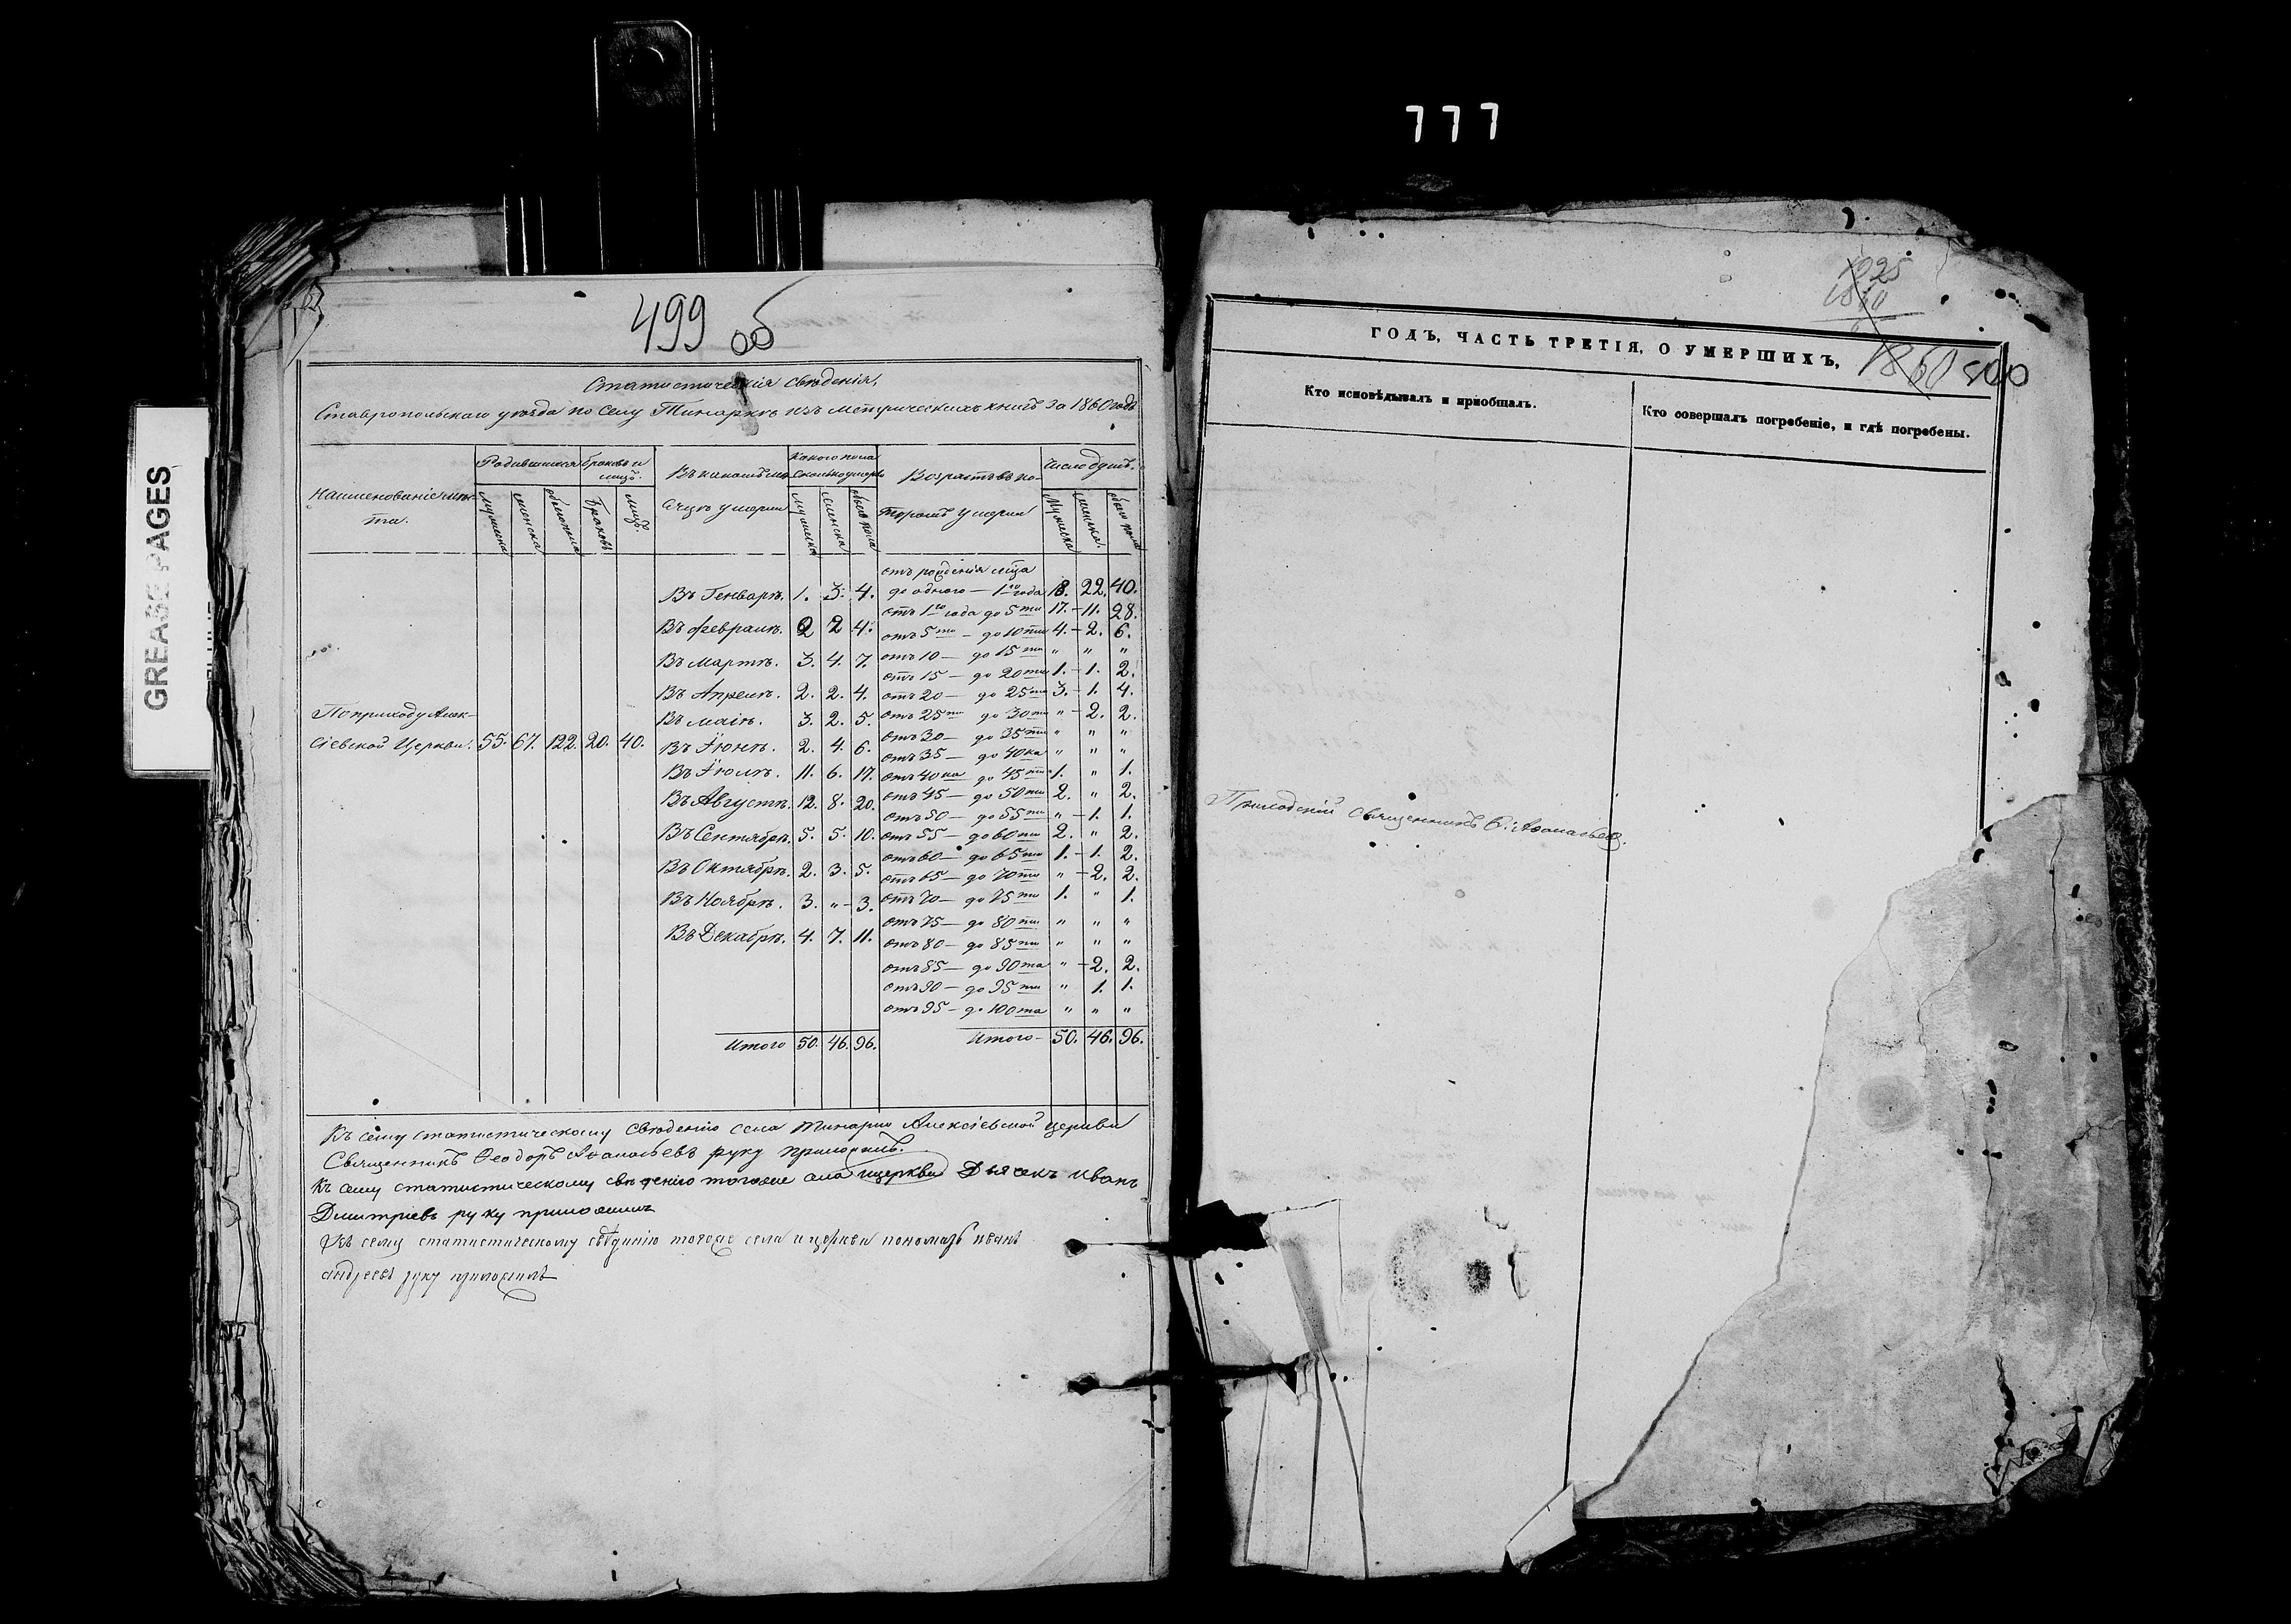 777
GREASE PAGES
499 об
Статистическія свѣденія,
Ставропольскаго уѣзда по селу Тинаркѣ изъ метрическихъ книгъ за 1860 годъ
Наименованіе мѣс-
та.
Родившихся
Мужеска
женска
обоего пола
браковъ и
лицъ.
Браковъ
лицъ.
Въ какомъ мѣ-
сяцѣ умерли
Какого пола
сколько умерло
Мужеска
Женска
обоего пола
Возрастъ въ ко-
торомъ умерли
Число душъ.
Мужеска
женска.
обоего пола
По приходу Алек-
сіевской Церкви. 55. 67. 122. 20. 40.
Въ Генварѣ. 1. 3. 4.
Въ февралѣ. 2 2 4.
Въ Мартѣ. 3. 4. 7.
Въ Апрелѣ. 2. 2. 4.
Въ маіѣ. 3. 2. 5.
Въ Іюнѣ. 2. 4. 6.
Въ Іюлѣ. 11. 6. 17.
Въ Августѣ. 12. 8. 20.
Въ Сентябрѣ. 5. 5. 10.
Въ Октябрѣ. 2. 3. 5.
Въ Ноябрѣ. 3. " - 3.
Въ Декабрѣ. 4. 7. 11.
Итого 50. 46. 96.
отъ рожденія
до одного — 1го года 18. 22. 40.
отъ 1го года до 5ти 17. - 11. 28.
отъ 5ти — до 10ти 4. - 2. 6.
отъ 10 — до 15ти " " "
отъ 15 — до 20ти 1. - 1. 2.
отъ 20 — до 25ти 3. - 1. 4.
отъ 25ти до 30ти " - 2. 2.
отъ 30 — до 35ти " " "
отъ 35 — до 40ка " " "
отъ 40ка до 45ти 1. " 1.
отъ 45 — до 50ти 2. " 2.
отъ 50 — до 55ти " - 1. 1.
отъ 55 — до 60ти 2. " 2.
отъ 60 — до 65ти 1. - 1. 2.
отъ 65 — до 70ти " - 2. 2.
отъ 70 — до 75ти 1. " 1.
отъ 75 — до 80ти " " "
отъ 80 — до 85ти " " "
отъ 85 — до 90та " - 2. 2.
отъ 90 — до 95ти " 1. 1.
отъ 95 — до 100та " " "
Итого — 50. 46. 96.
Къ сему статистическому свѣденію села Тинарки Алексіевской церкви
Священникъ Ѳеодоръ Аѳанасьевъ руку приложилъ.
Къ сему статистическому свѣденію тогоже села ицеркви Дьячекъ Иванъ
Дмитріевъ руку приложилъ
Къ сему статистическому свѣденію тогоже села и церкви пономарь иванъ
андреевъ руку приложилъ
1860
500
ГОДЪ, ЧАСТЬ ТРЕТІЯ, О УМЕРШИХЪ,
Кто исповѣдывалъ и пріобщалъ.
Кто совершалъ погребеніе, и гдѣ погребены.
Приходскій священникъ Ѳ: Аѳанасьевъ.